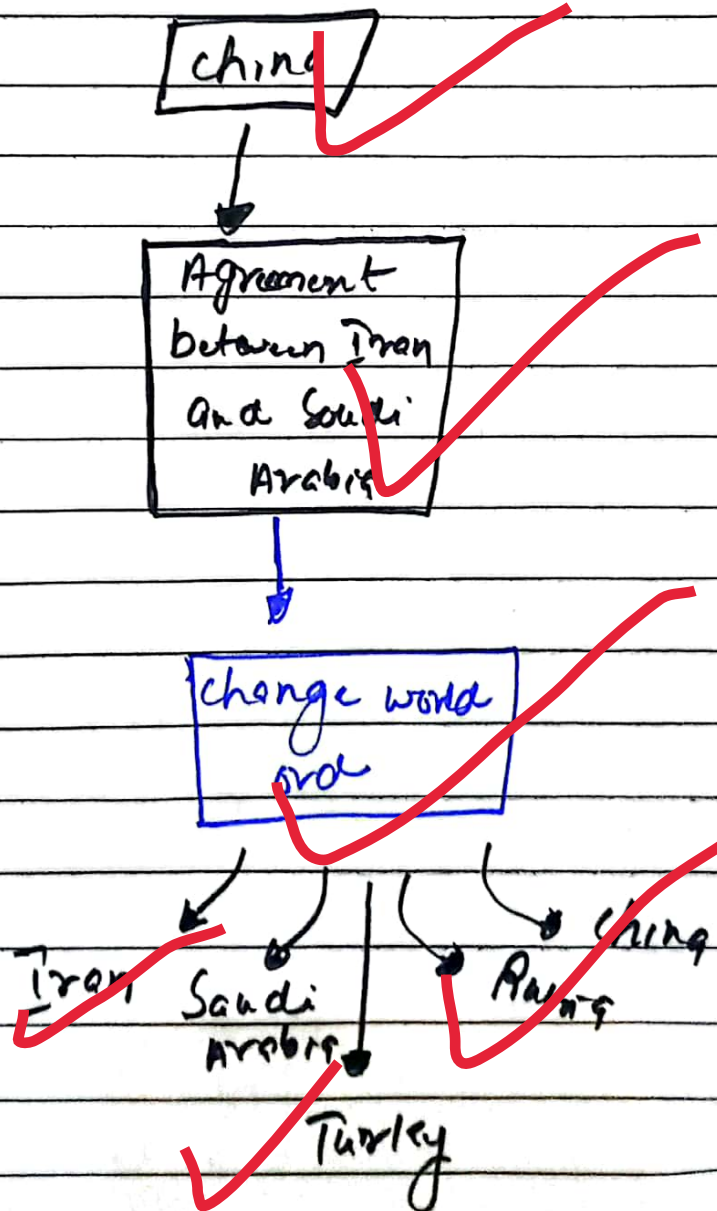 China
Agreement
between Iran
and Saudi
Arabia
change world
ord
Iran
Saudi
Arabia
Turkey
Russia
China